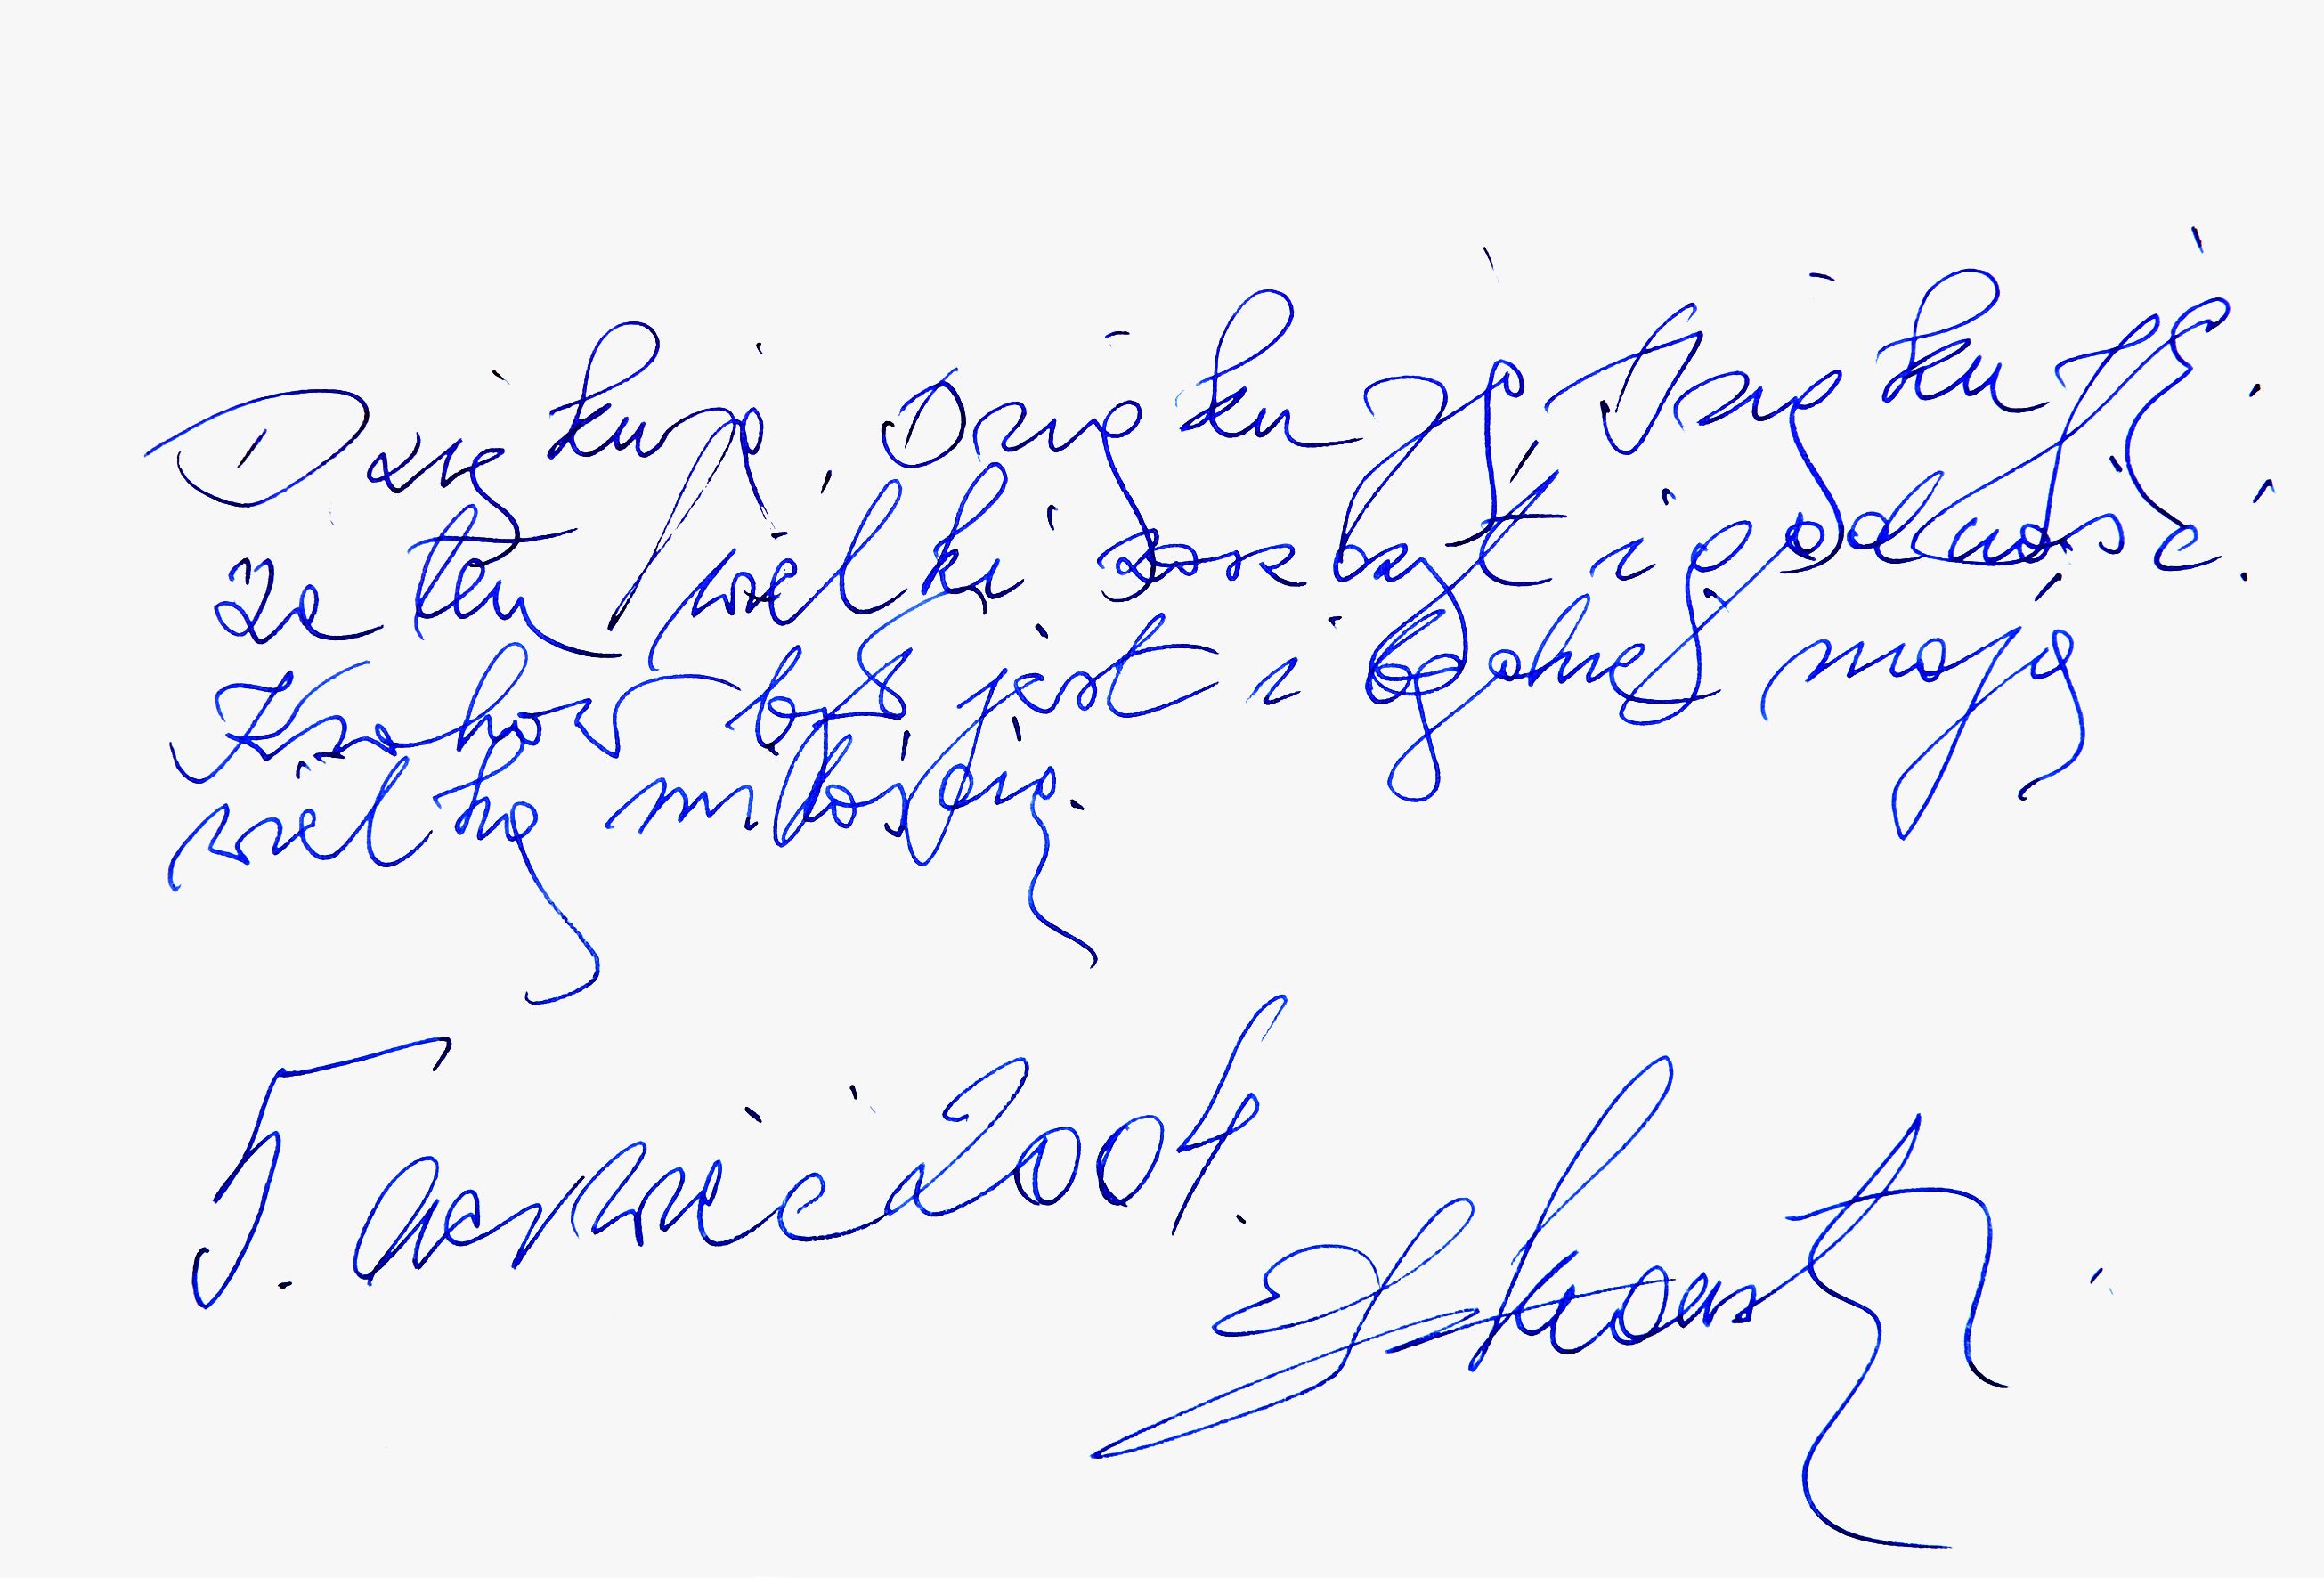 Dziękuję, Dziękuję, Dziękuję!
Za ten wielki zaszczyt i godność.
Kraków był, jest i będzie moją
wielką miłością.
5. kwiecień 2004.